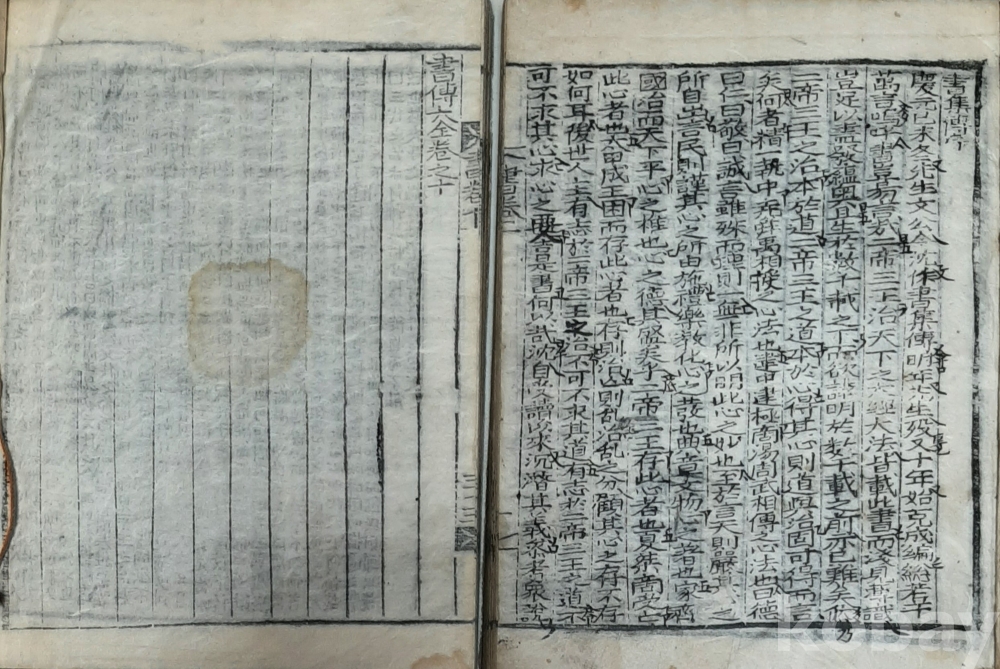 書集傳序
慶元己未冬先生文公令沈作書集傳明年先生歿又十年始克成編總若干
萬言嗚呼書豈易言哉二帝三王治天下之大經大法皆載此書而淺見薄識
豈足以盡發蘊奧且生於數千載之下而欲講明於數千載之前亦已難矣然
二帝三王之治本於道二帝三王之道本於心得其心則道與治固可得而言
矣何者精一執中堯舜禹相授之心法也建中建極商湯周武相傳之心法也曰德
曰仁曰敬曰誠言雖殊而理則一無非所以明此心之妙也至於言天則嚴其心之
所自出言民則謹其心之所由施禮樂教化心之發也典章文物心之著也家齊
國治而天下平心之推也心之德其盛矣乎二帝三王存此心者也夏桀商受亡
此心者也太甲成王困而存此心者也存則治亡則亂治亂之分顧其心之存不存
如何耳後世人主有志於二帝三王之治不可不求其道有志於二帝三王之道不
可不求其心求心之要舍是書何以哉沈自受讀以來沉潛其義參考衆說
書傳大全卷之十
kobay